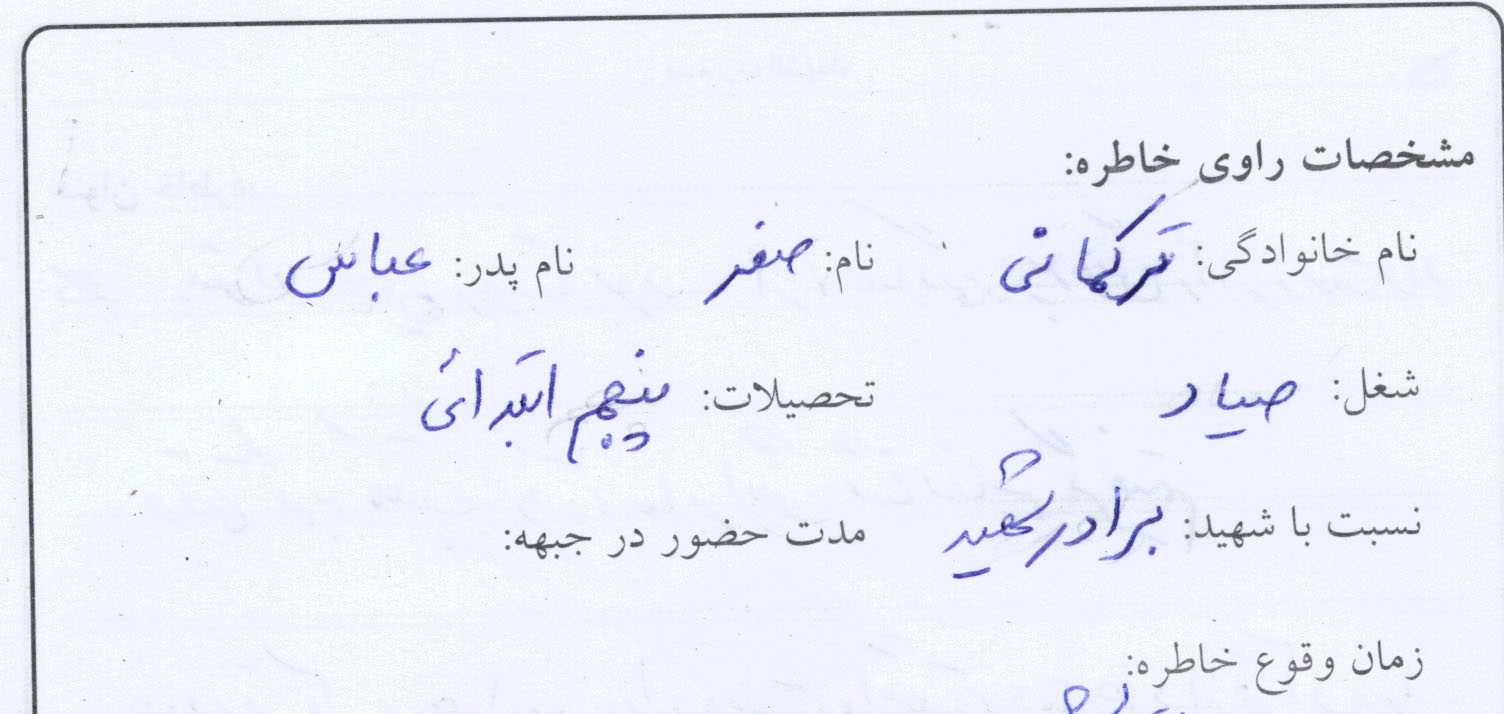 مشخصات راوی خاطره:
نام خانوادگی: ترکمانی نام: صفر نام پدر: عباس
شغل: صیاد تحصیلات: پنجم ابتدائی
نسبت با شهید: برادر شهید مدت حضور در جبهه:
زمان وقوع خاطره: